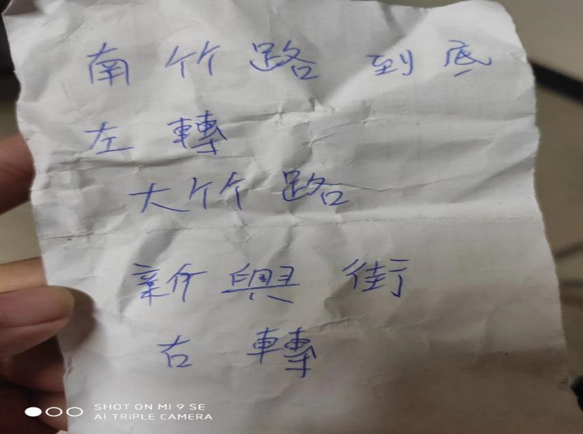 南竹路 到底
左轉
大竹路
新興街
右轉
SHOT ON MI 9 SE
AI TRIPLE CAMERA